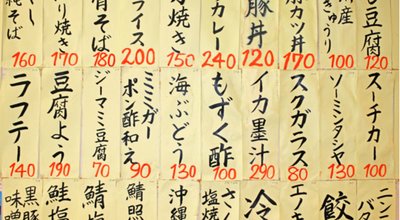 も豆腐
120
産
きゅうり
100
カツ丼
170
豚丼
120
カレー
240
焼き
150
ライス
200
そば
180
り焼き
170
そば
160
スーチカー
100
ソーミンタシヤ
130
スクガラス
80
イカ墨汁
290
もずく酢
100
海ぶどう
130
ミミガー
ポン酢和え
90
ジーマミ豆腐
70
豆腐よう
190
ラフテー
140
ニンニ
バタ
餃
エノキ
冷
さ
塩焼
沖縄
鯖照
鯖
鮭塩
黒豚
味噌